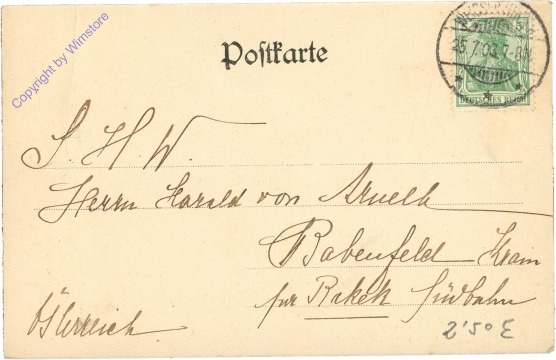 Copyright by Wimstore
Postkarte
25.7.03.7-8N
DEUTSCHES REICH
S. H. W.
Herrn Harald von
Babenfeld Krain
per Rakek Südbahn
Österreich
2'50 €